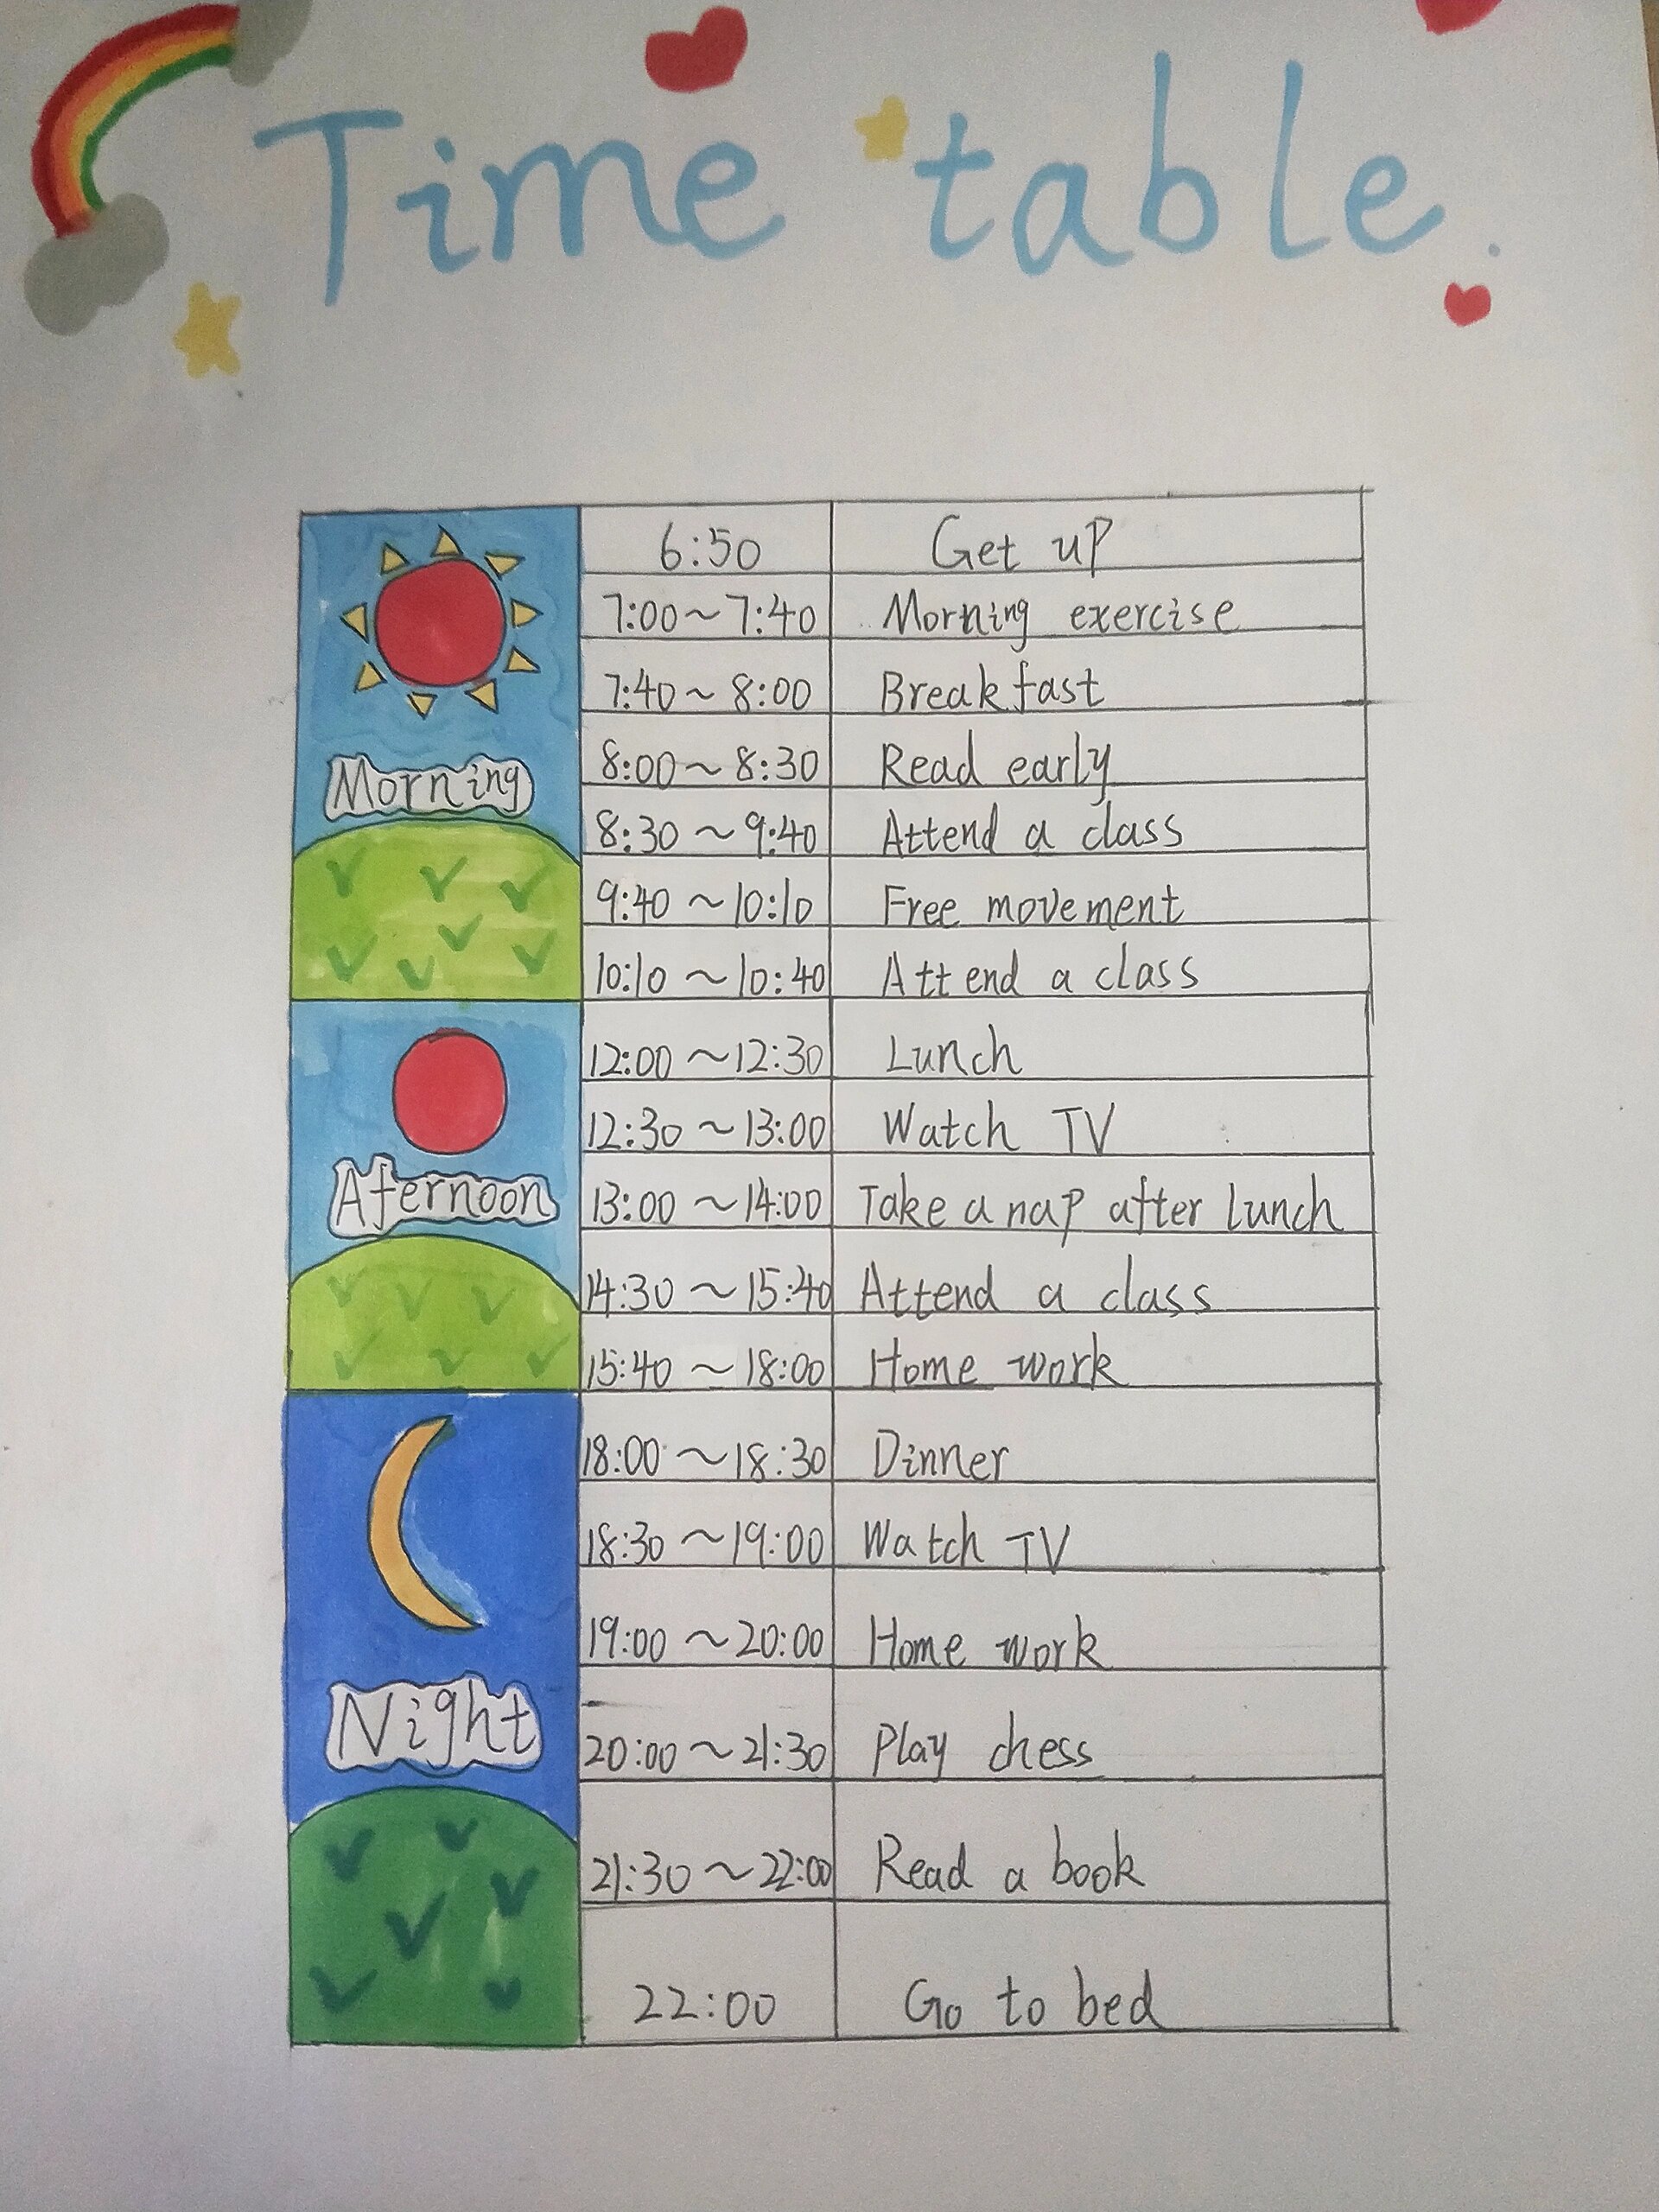 Time table.
6:50 Get up
7:00~7:40 Morning exercise
7:40~8:00 Breakfast
8:00~8:30 Read early
Morning
8:30~9:40 Attend a class
9:40~10:10 Free movement
10:10~10:40 Attend a class
12:00~12:30 Lunch
12:30~13:00 Watch TV
Afernoon
13:00~14:00 Take a nap after lunch
14:30~15:40 Attend a class
15:40~18:00 Home work
18:00~18:30 Dinner
18:30~19:00 Watch TV
19:00~20:00 Home work
Night
20:00~21:30 Play chess
21:30~22:00 Read a book
22:00 Go to bed